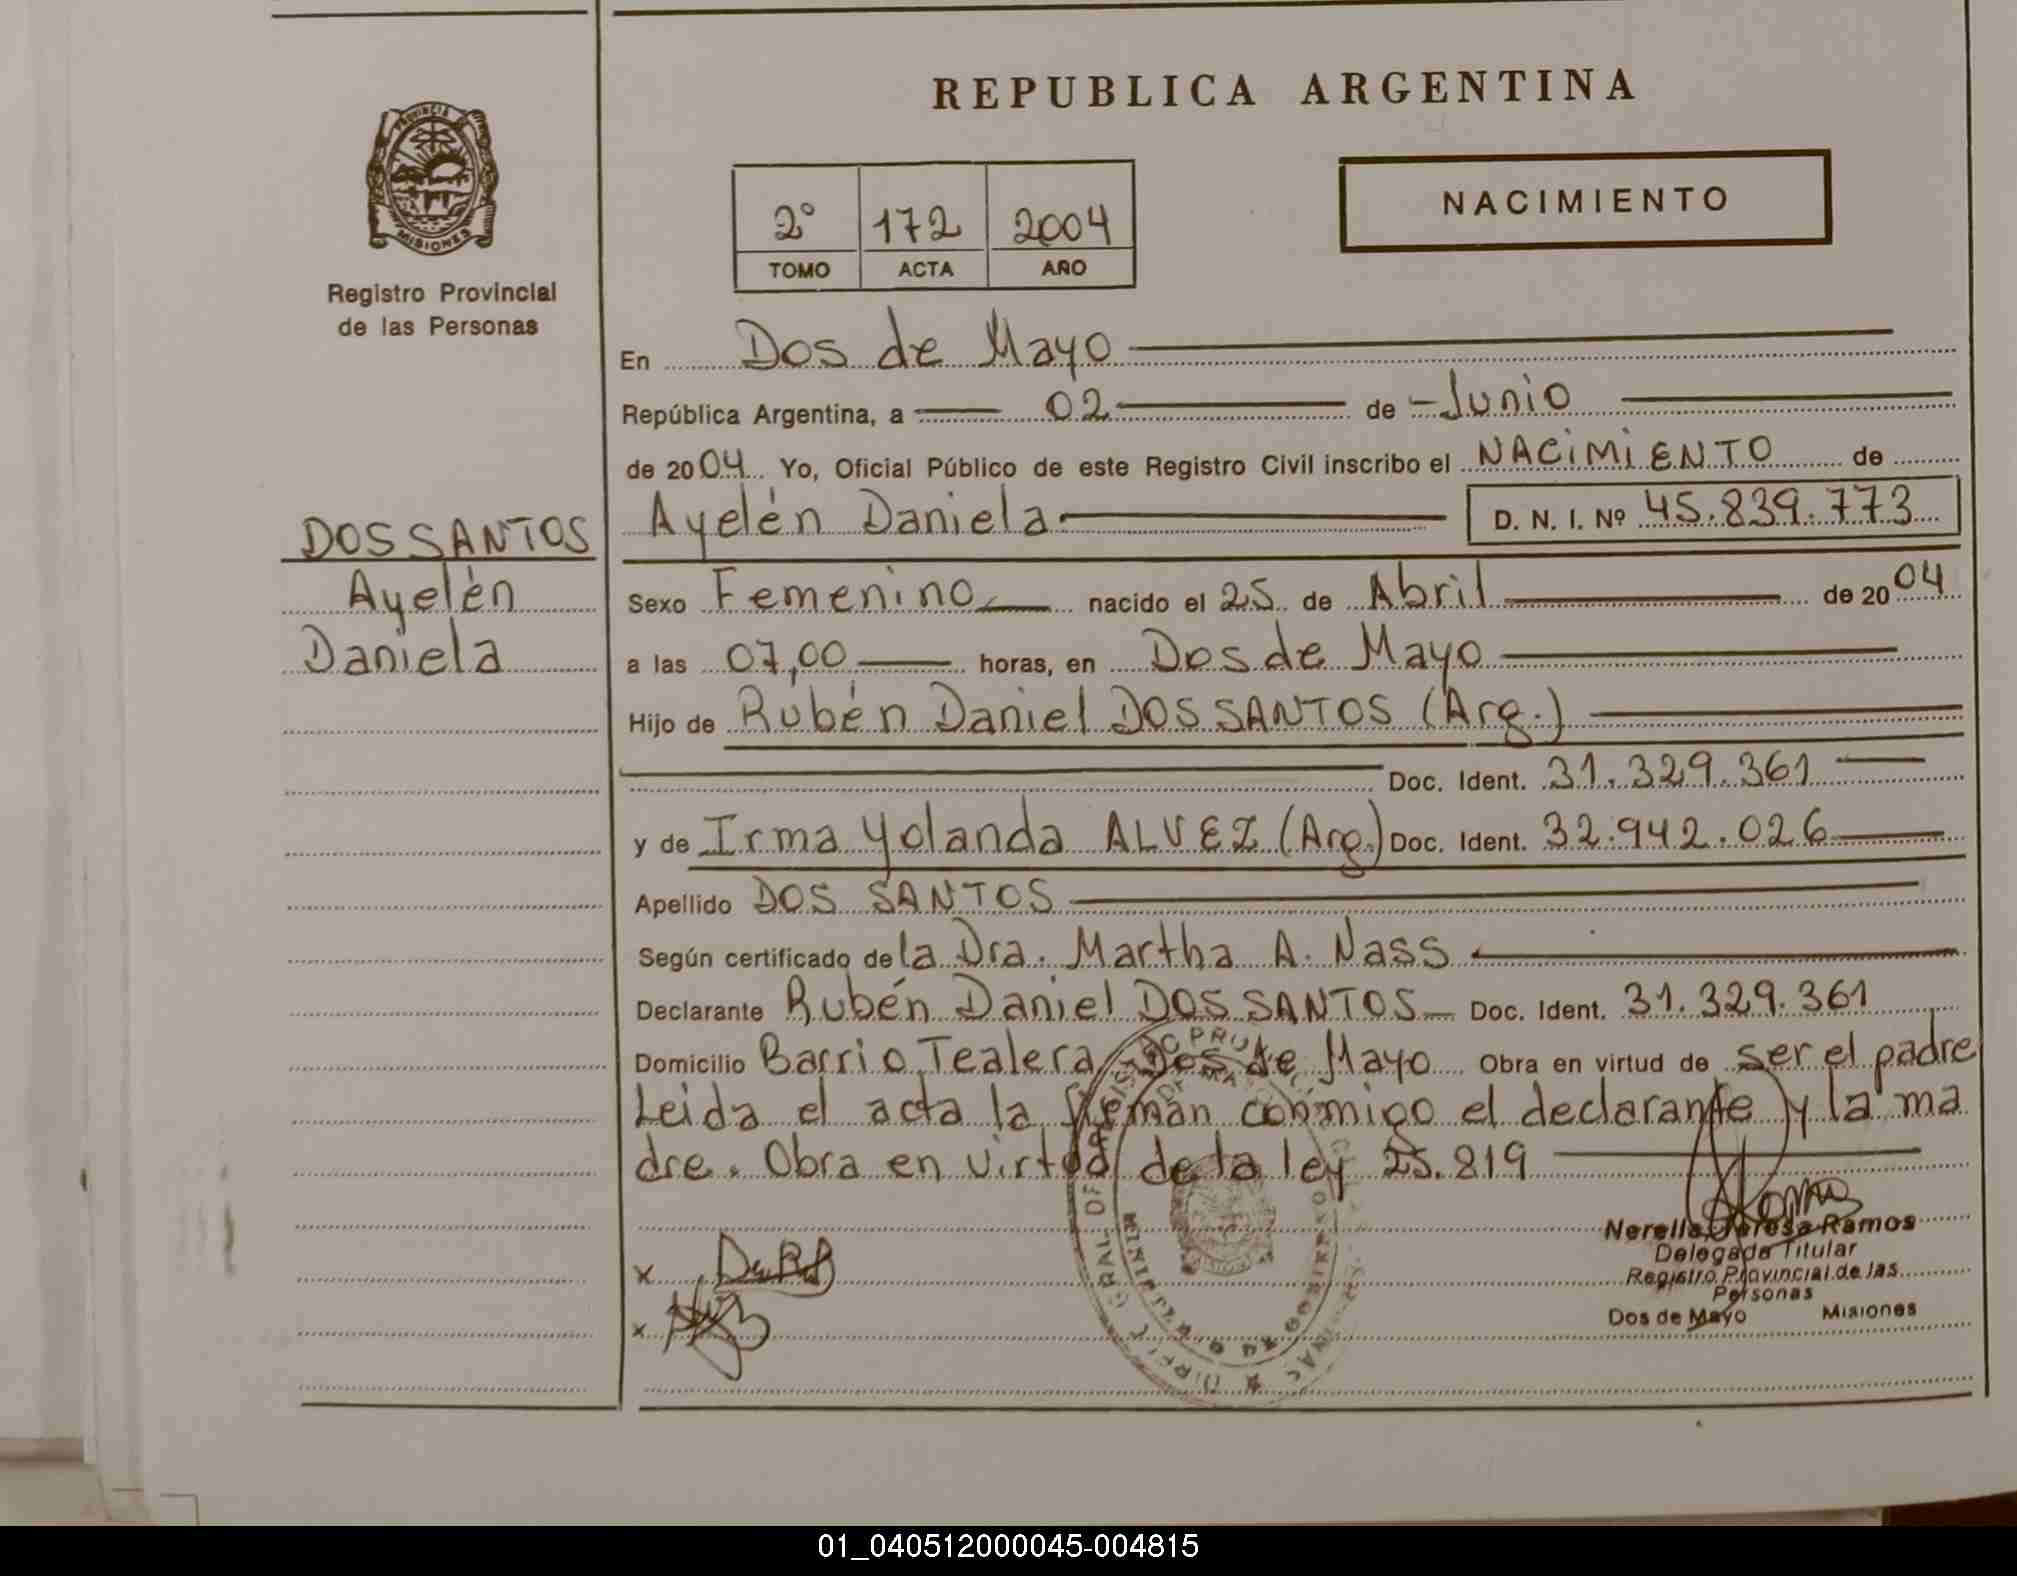 REPUBLICA ARGENTINA
PROVINCIA
MISIONES
Registro Provincial
de las Personas
2° 172 2004
TOMO ACTA AÑO
NACIMIENTO
En Dos de Mayo
República Argentina, a 02 de Junio
de 2004 Yo, Oficial Público de este Registro Civil inscribo el NACIMIENTO de
Ayelén Daniela D. N. I. Nº 45.839.773
DOS SANTOS
Ayelén
Daniela
Sexo Femenino nacido el 25 de Abril de 2004
a las 07,00 horas, en Dos de Mayo
Hijo de Rubén Daniel DOS SANTOS (Arg.)
Doc. Ident. 31.329.361
y de Irma Yolanda ALVEZ (Arg.) Doc. Ident. 32.942.026
Apellido DOS SANTOS
Según certificado de la Dra. Martha A. Nass
Declarante Rubén Daniel DOS SANTOS Doc. Ident. 31.329.361
Domicilio Barrio Tealera Dos de Mayo Obra en virtud de ser el padre
Leida el acta la firman conmigo el declarante y la ma
dre. Obra en virtud de la ley 25.819
Nerella Teresa Ramos
Delegada Titular
Registro Provincial de las
Personas
Dos de Mayo Misiones
x
x
01_040512000045-004815